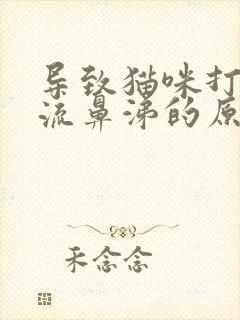 导致猫咪打
流鼻涕的原
禾念念